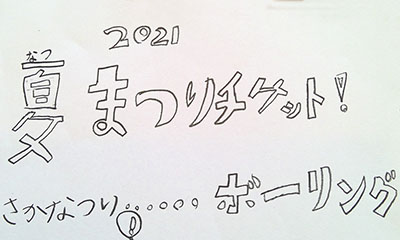 2021
夏まつりチケット!
さかなつり!……ボーリング